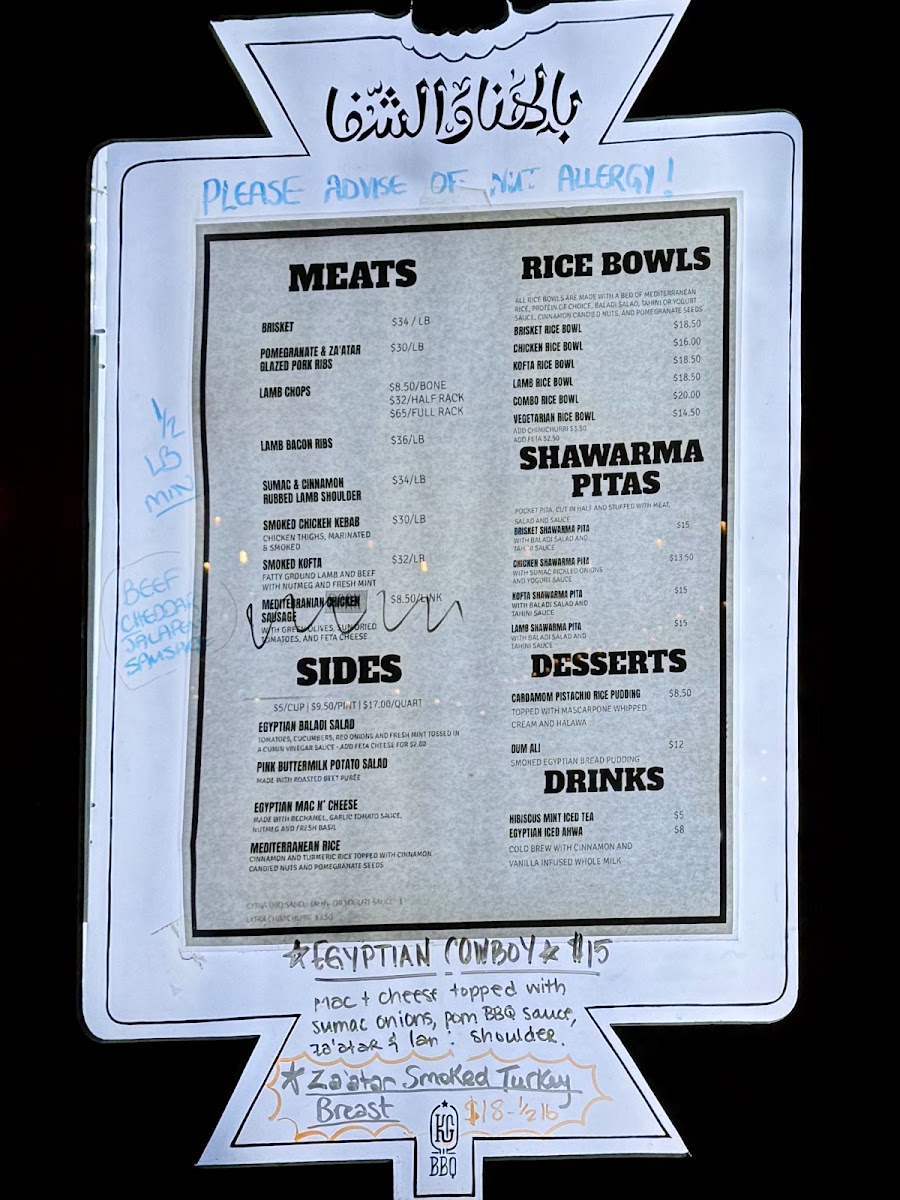 بالهنا والشفا
PLEASE ADVISE OF NUT ALLERGY!
MEATS
BRISKET $34 / LB
POMEGRANATE & ZA'ATAR $30/LB
GLAZED PORK RIBS
LAMB CHOPS $8.50/BONE
$32/HALF RACK
$65/FULL RACK
LAMB BACON RIBS $36/LB
SUMAC & CINNAMON $34/LB
RUBBED LAMB SHOULDER
SMOKED CHICKEN KEBAB $30/LB
CHICKEN THIGHS, MARINATED
& SMOKED
SMOKED KOFTA $32/LB
FATTY GROUND LAMB AND BEEF
WITH NUTMEG AND FRESH MINT
MEDITERRANIAN CHICKEN $8.50/LINK
SAUSAGE
WITH GREEN OLIVES, SUNDRIED
TOMATOES, AND FETA CHEESE
1/2
LB
MIN
BEEF
CHEDDAR
JALAPEÑ
SAMSAGE
SIDES
$5/CUP | $9.50/PINT | $17.00/QUART
EGYPTIAN BALADI SALAD
TOMATOES, CUCUMBERS, RED ONIONS AND FRESH MINT TOSSED IN
A CUMIN VINEGAR SAUCE - ADD FETA CHEESE FOR $2.00
PINK BUTTERMILK POTATO SALAD
MADE WITH ROASTED BEET PURÉE
EGYPTIAN MAC N' CHEESE
MADE WITH BECHAMEL, GARLIC TOMATO SAUCE,
NUTMEG AND FRESH BASIL
MEDITERRANEAN RICE
CINNAMON AND TURMERIC RICE TOPPED WITH CINNAMON
CANDIED NUTS AND POMEGRANATE SEEDS
EXTRA BBQ SAUCE, TAHINI OR YOGURT SAUCE
EXTRA CHIMICHURRI $3.50
RICE BOWLS
ALL RICE BOWLS ARE MADE WITH A BED OF MEDITERRANEAN
RICE, PROTEIN OF CHOICE, BALADI SALAD, TAHINI OR YOGURT
SAUCE, CINNAMON CANDIED NUTS, AND POMEGRANATE SEEDS
BRISKET RICE BOWL $18.50
CHICKEN RICE BOWL $16.00
KOFTA RICE BOWL $18.50
LAMB RICE BOWL $18.50
COMBO RICE BOWL $20.00
VEGETARIAN RICE BOWL $14.50
ADD CHIMICHURRI $3.50
ADD FETA $2.50
SHAWARMA
PITAS
POCKET PITA, CUT IN HALF AND STUFFED WITH MEAT,
SALAD AND SAUCE
BRISKET SHAWARMA PITA $15
WITH BALADI SALAD AND
TAHINI SAUCE
CHICKEN SHAWARMA PITA $13.50
WITH SUMAC PICKLED ONIONS
AND YOGURT SAUCE
KOFTA SHAWARMA PITA $15
WITH BALADI SALAD AND
TAHINI SAUCE
LAMB SHAWARMA PITA $15
WITH BALADI SALAD AND
TAHINI SAUCE
DESSERTS
CARDAMOM PISTACHIO RICE PUDDING $8.50
TOPPED WITH MASCARPONE WHIPPED
CREAM AND HALAWA
OUM ALI $12
SMOKED EGYPTIAN BREAD PUDDING
DRINKS
HIBISCUS MINT ICED TEA $5
EGYPTIAN ICED AHWA $8
COLD BREW WITH CINNAMON AND
VANILLA INFUSED WHOLE MILK
★EGYPTIAN COWBOY★ $15
Mac + cheese topped with
sumac onions, pom BBQ sauce,
za'atar & lam shoulder.
★Za'atar Smoked Turkey
Breast $18-1/2 lb
KG
BBQ